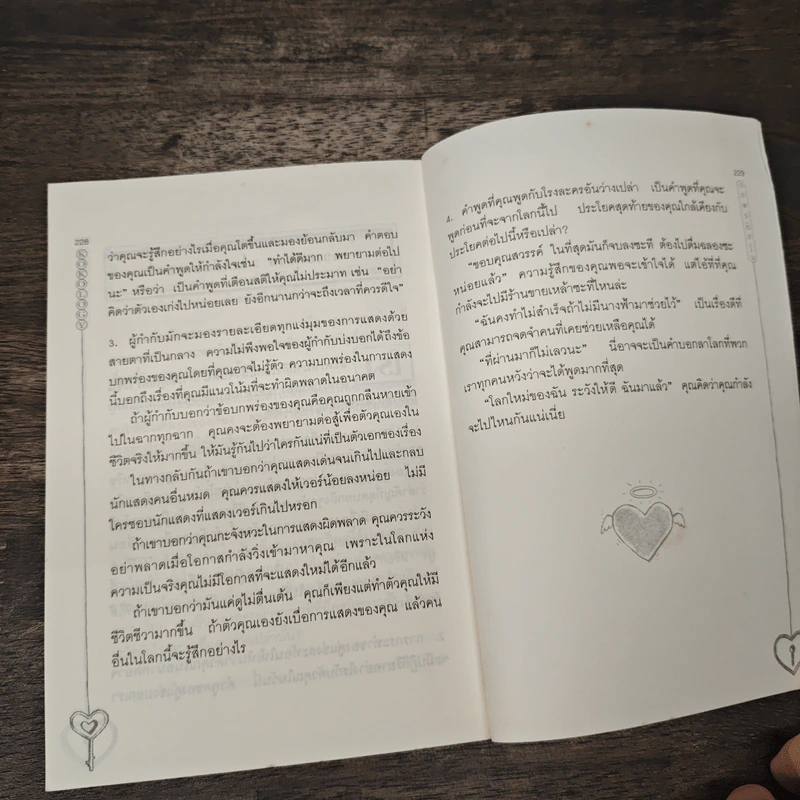 228
ว่าคุณจะรู้สึกอย่างไรเมื่อคุณโตขึ้นและมองย้อนกลับมา คำตอบ
ของคุณเป็นคำพูดให้กำลังใจเช่น “ทำได้ดีมาก พยายามต่อไป
นะ” หรือว่า เป็นคำพูดที่เตือนสติให้คุณไม่ประมาท เช่น “อย่า
คิดว่าตัวเองเก่งไปหน่อยเลย ยังอีกนานกว่าจะถึงเวลาที่ควรดีใจ”
3. ผู้กำกับมักจะมองรายละเอียดทุกแง่มุมของการแสดงด้วย
สายตาที่เป็นกลาง ความไม่พึงพอใจของผู้กำกับบ่งบอกได้ถึงข้อ
บกพร่องของคุณโดยที่คุณอาจไม่รู้ตัว ความบกพร่องในการแสดง
นี้บอกถึงเรื่องที่คุณมีแนวโน้มที่จะทำผิดพลาดในอนาคต
ถ้าผู้กำกับบอกว่าข้อบกพร่องของคุณคือคุณถูกกลืนหายเข้า
ไปในฉากทุกฉาก คุณคงจะต้องพยายามต่อสู้เพื่อตัวคุณเองใน
ชีวิตจริงให้มากขึ้น ให้มันรู้กันไปว่าใครกันแน่ที่เป็นตัวเอกของเรื่อง
ในทางกลับกันถ้าเขาบอกว่าคุณแสดงเด่นจนเกินไปและกลบ
นักแสดงคนอื่นหมด คุณควรแสดงให้เวอร์น้อยลงหน่อย ไม่มี
ใครชอบนักแสดงที่แสดงเวอร์เกินไปหรอก
ถ้าเขาบอกว่าคุณกะจังหวะในการแสดงผิดพลาด คุณควรระวัง
อย่าพลาดเมื่อโอกาสกำลังวิ่งเข้ามาหาคุณ เพราะในโลกแห่ง
ความเป็นจริงคุณไม่มีโอกาสที่จะแสดงใหม่ได้อีกแล้ว
ถ้าเขาบอกว่ามันแค่ดูไม่ตื่นเต้น คุณก็เพียงแต่ทำตัวคุณให้มี
ชีวิตชีวามากขึ้น ถ้าตัวคุณเองยังเบื่อการแสดงของคุณ แล้วคน
อื่นในโลกนี้จะรู้สึกอย่างไร
229
4. คำพูดที่คุณพูดกับโรงละครอันว่างเปล่า เป็นคำพูดที่คุณจะ
พูดก่อนที่จะจากโลกนี้ไป ประโยคสุดท้ายของคุณใกล้เคียงกับ
ประโยคต่อไปนี้หรือเปล่า?
“ขอบคุณสวรรค์ ในที่สุดมันก็จบลงซะที ต้องไปดื่มฉลองซะ
หน่อยแล้ว” ความรู้สึกของคุณพอจะเข้าใจได้ แต่ไอ้ที่ที่คุณ
กำลังจะไปมีร้านขายเหล้าซะที่ไหนล่ะ
“ฉันคงทำไม่สำเร็จถ้าไม่มีนางฟ้ามาช่วยไว้” เป็นเรื่องดีที่
คุณสามารถจดจำคนที่เคยช่วยเหลือคุณได้
“ที่ผ่านมาก็ไม่เลวนะ” นี่อาจจะเป็นคำบอกลาโลกที่พวก
เราทุกคนหวังว่าจะได้พูดมากที่สุด
“โลกใหม่ของฉัน ระวังให้ดี ฉันมาแล้ว” คุณคิดว่าคุณกำลัง
จะไปไหนกันแน่เนี่ย